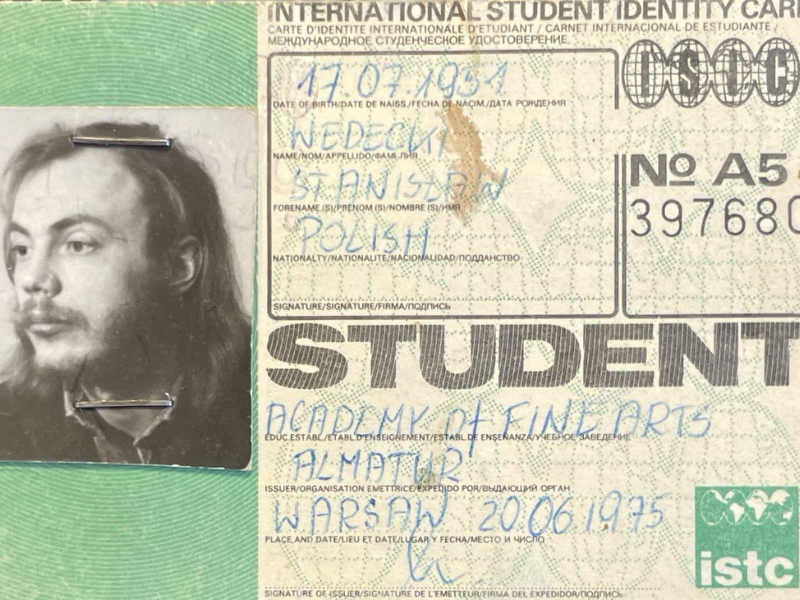 INTERNATIONAL STUDENT IDENTITY CAR
CARTE D'IDENTITE INTERNATIONALE D'ETUDIANT / CARNET INTERNACIONAL DE ESTUDIANTE /
МЕЖДУНАРОДНОЕ СТУДЕНЧЕСКОЕ УДОСТОВЕРЕНИЕ
17.07.1951
DATE OF BIRTH/DATE DE NAISS./FECHA DE NACIM./ДАТА РОЖДЕНИЯ
WEDECKI
NAME/NOM/APPELLIDO/ФАМ.ЛИЯ
STANISŁAW
FORENAME (S)/PRENOM (S)/NOMBRE (S)/ИМЯ
POLISH
NATIONALTY/NATIONALITE/NACIONALIDAD/ПОДДАНСТВО
SIGNATURE/SIGNATURE/FIRMA/ПОДПИСЬ
ISIC
No A5
397680
STUDENT
ACADEMY of FINE ARTS
EDUC.ESTABL./ETABL.D'ENSEIGNEMENT/ESTABL.DE ENSEÑANZA/УЧЕБНОЕ ЗАВЕДЕНИЕ
ALMATUR
ISSUER/ORGANISATION EMETTRICE/EXPEDIDO POR/ВЫДАЮЩИЙ ОРГАН
WARSAW 20 06 1975
PLACE AND DATE/LIEU ET DATE/LUGAR Y FECHA/МЕСТО И ЧИСЛО
SIGNATURE OF ISSUER/SIGNATURE DE L'EMETTEUR/FIRMA DEL EXPEDIDOR/ПОДПИСЬ
istc